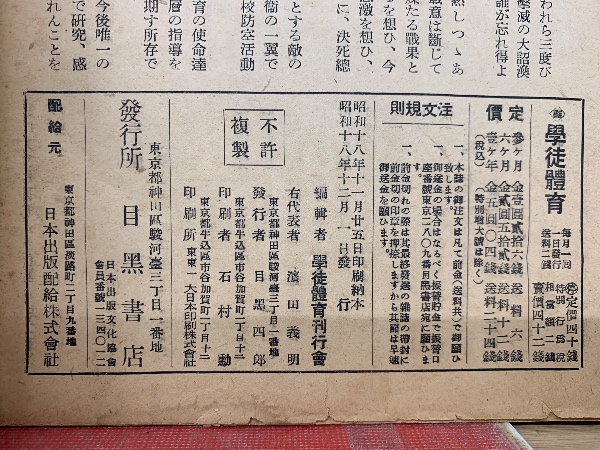 われら三度び
撃滅の大詔渙
誰が忘れ得よ
熱しつゝあ
戰意は斷じて
たる戰果と
を想ひ、今
激を想ひ、
に、決死總
とする敵の
衞の一翼で
校防空活動
育の使命達
層の指導を
期す所存で
今後唯一の
で研究、感
れんことを
學徒體育
毎月一回
一日發行
送料二錢
定價四十錢
特別行爲税
相當額二錢
賣價四十二錢
定價
參ヶ月 金壹圓貳拾六錢 送料六錢
六ヶ月 金貳圓五拾貳錢 送料十二錢
壹ヶ年 金五圓〇四錢 送料二十四錢
(税込) (特別增大號は除く)
注文規則
一、本誌の御注文は凡て前金(送料共)で御願ひ
致します。
一、御送金の場合はなるべく振替貯金で振替口
座番號東京二八〇九番目黑書店宛に願ひま
す。
一、前金切れの際は其最終發送の雜誌の帶封に
前金切の印章を押捺しますから其節は早速
御送金を願ひます。
昭和十八年十一月廿五日印刷納本
昭和十八年十二月一日發行
不許
複製
編輯者 學徒體育刊行會
右代表者 濵田義明
東京都神田區駿河臺三丁目一番地
發行者 目黑四郎
東京都牛込區市谷加賀町一丁目十二
印刷者 石村勳
東京都牛込區市谷加賀町一丁目十二
印刷所 東東一大日本印刷株式會社
東京都神田區駿河臺三丁目一番地
發行所 目黑書店
日本出版文化協會
會員番號一三四〇二二
配給元
東京都神田區淡路町二丁目九番地
日本出版配給株式會社